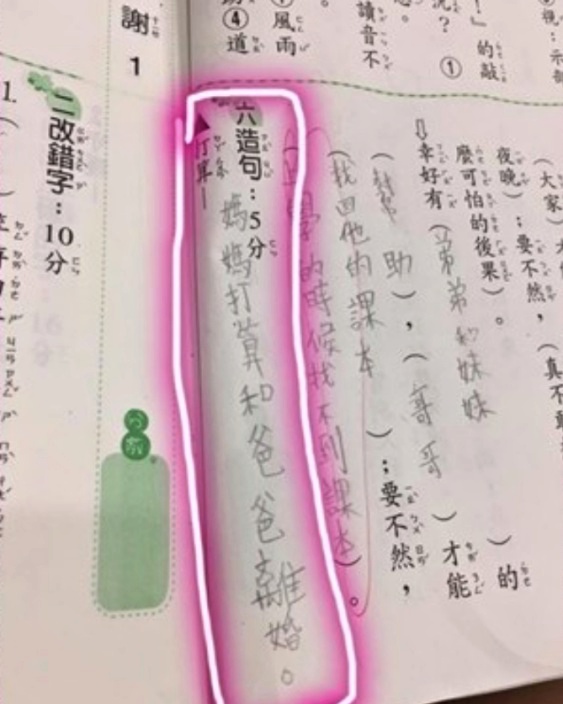 ④道
風雨
讀音不
況？
①
』的敲
（大家）
夜晚）；要不然，
麼可怕的後果）。
幸好有（弟弟和妹妹）的
（幫助），（哥哥）才能
（找回他的課本）；要不然，
（上學的時候找不到課本）。
六 造句：5分
打算—
媽媽打算和爸爸離婚。
謝
1
二 改錯字：10分
1.